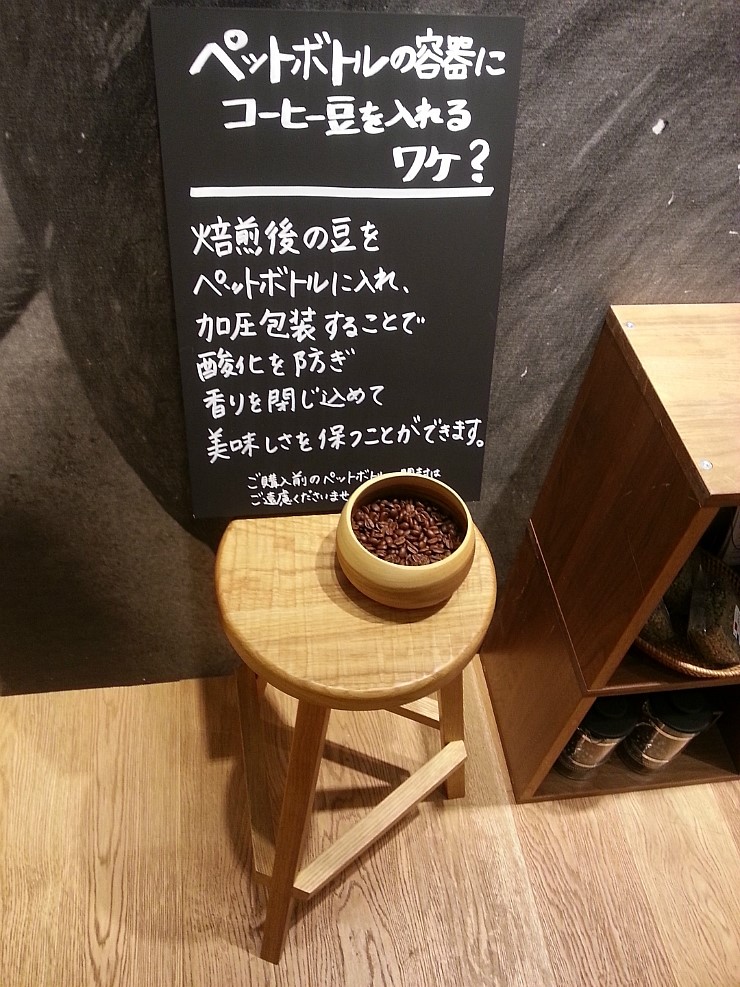 ペットボトルの容器に
コーヒー豆を入れる
ワケ?
焙煎後の豆を
ペットボトルに入れ、
加圧包装することで
酸化を防ぎ
香りを閉じ込めて
美味しさを保つことができます。
ご購入前のペットボトル
ご遠慮くださいませ